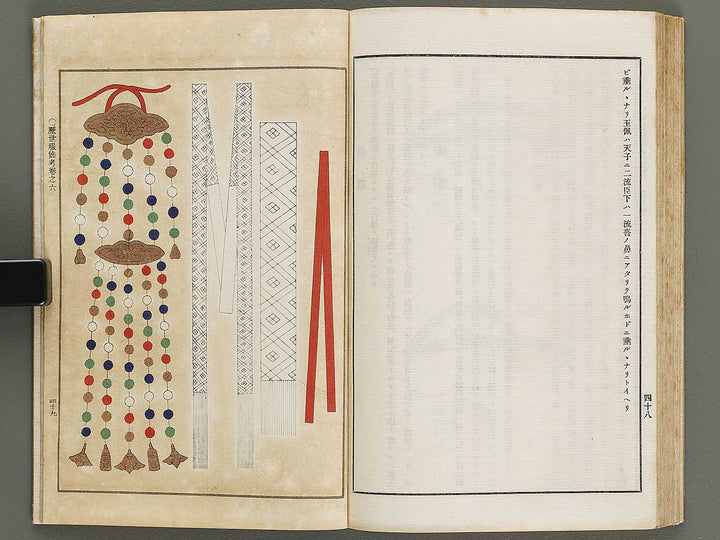 ビ垂ルヽナリ玉佩ハ天子ニ二流臣下ハ一流沓ノ鼻ニアタリテ鳴ルホドニ垂ルヽナリトイヘリ
四十八
○歴世服飾考卷之六
四十九